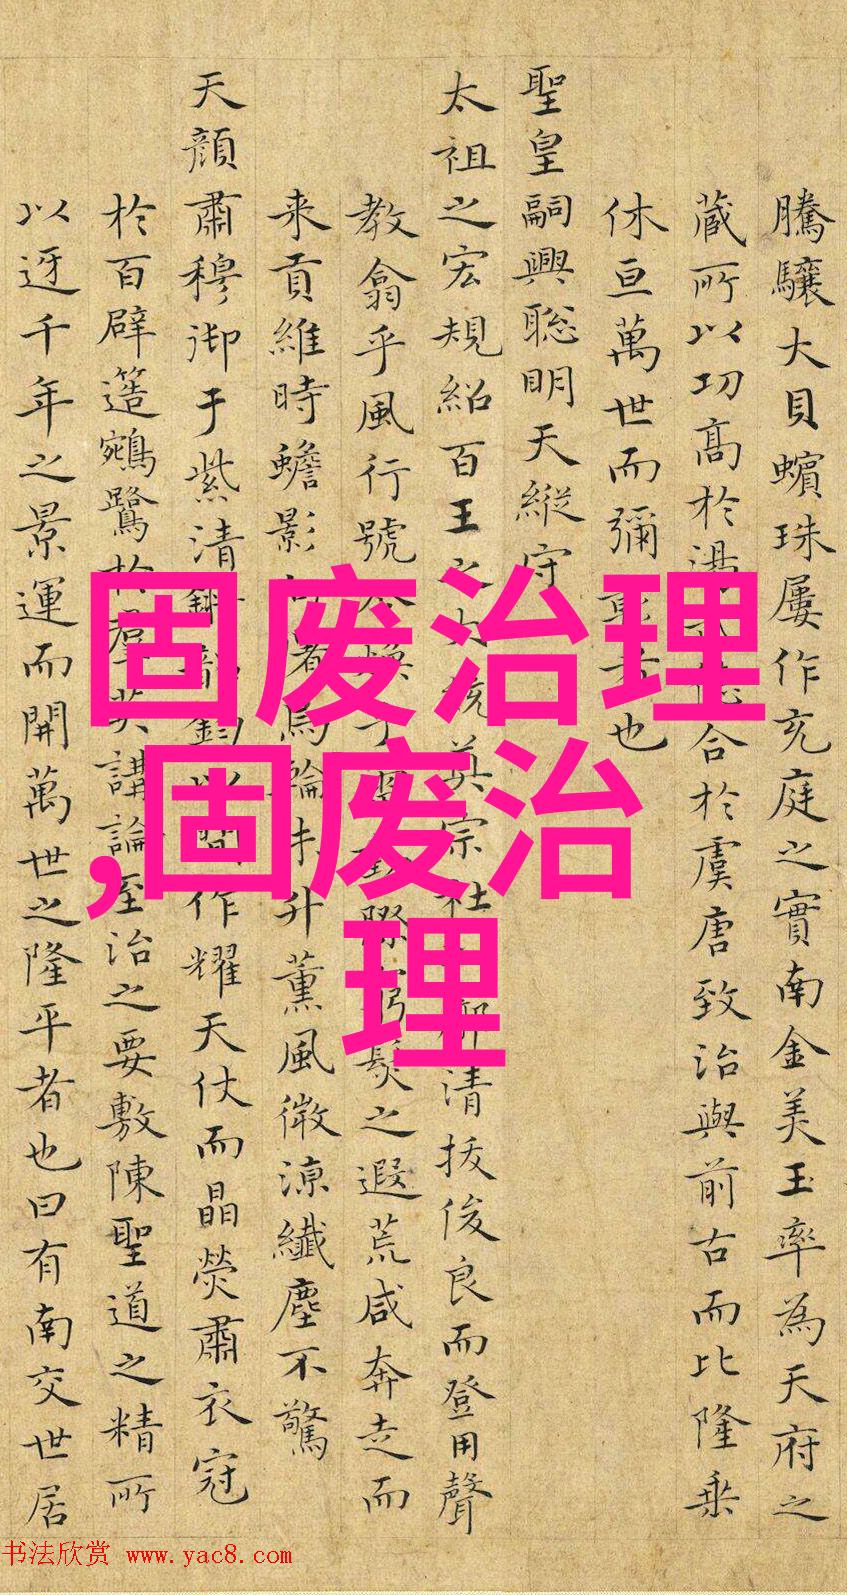 騰驤大貝蠙珠屢作充庭之實南金美玉率為天府之
蔵所以功髙於合於虞唐致治與前古而比隆乗
休亘萬世而彌也
聖皇嗣興聡明天縦守
太祖之宏規紹百王之宗社清拔俊良而登用聲
教翕乎風行號之遐荒咸奔走而
来貢維時蟾影升薫風微涼纖塵不驚
天顔肅穆御于紫清作耀天仗而晶熒肅衣冠
於百辟簉鵷鷺於羣英講論至治之要敷陳聖道之精所
以迓千年之景運而開萬世之隆平者也曰有南交世居
固废治理
,固废治
理
书法欣赏 www.yac8.com